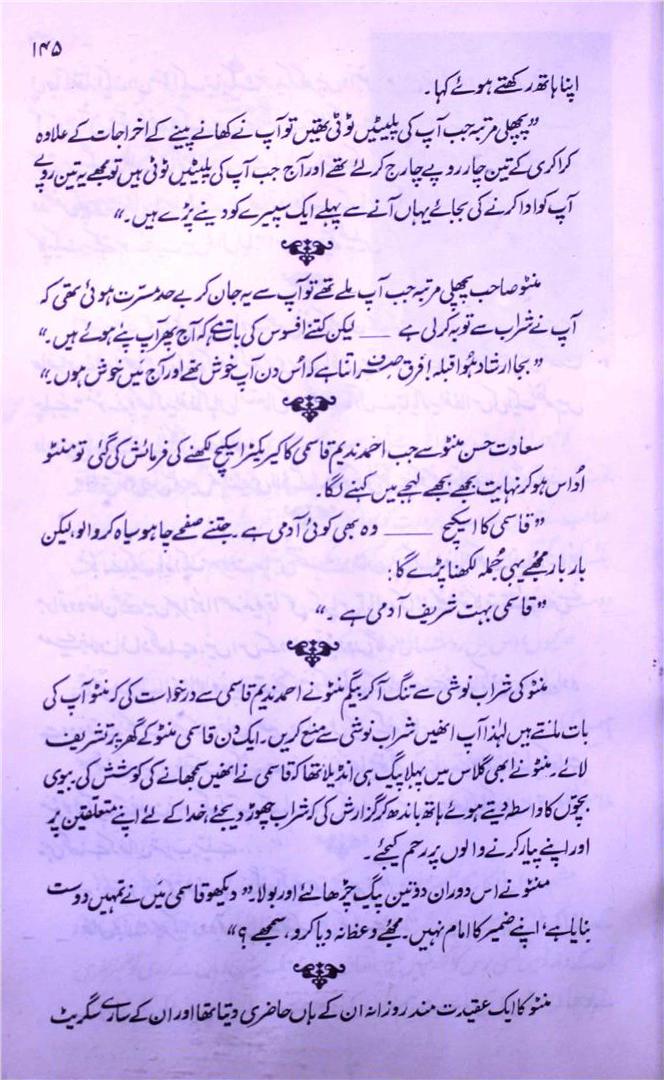 ۱۴۵
اپنا ہاتھ رکھتے ہوئے کہا۔
”پچھلی مرتبہ جب آپ کی پلیٹیں ٹوٹی تھیں تو آپ نے کھانے پینے کے اخراجات کے علاوہ
کراکری کے تین چار روپے چارج کر لئے تھے اور آج جب آپ کی پلیٹیں ٹوٹی ہیں تو مجھے یہ تین روپے
آپ کو ادا کرنے کی بجائے یہاں آنے سے پہلے ایک سپیرے کو دینے پڑے ہیں۔“
منٹو صاحب پچھلی مرتبہ جب آپ ملے تھے تو آپ سے یہ جان کر بے حد مسرت ہوئی تھی کہ
آپ نے شراب سے توبہ کر لی ہے ــــ لیکن کتنے افسوس کی بات ہے کہ آج پھر آپ پئے ہوئے ہیں۔“
”بجا ارشاد ہوا قبلہ! فرق صرف اتنا ہے کہ اُس دن آپ خوش تھے اور آج میں خوش ہوں۔“
سعادت حسن منٹو سے جب احمد ندیم قاسمی کا کیریکٹر اسکیچ لکھنے کی فرمائش کی گئی تو منٹو
اُداس ہو کر نہایت بجھے بجھے لہجے میں کہنے لگا۔
”قاسمی کا اسکیچ ــــ وہ بھی کوئی آدمی ہے۔ جتنے صفحے چاہو سیاہ کروا لو، لیکن
بار بار مجھے یہی جُملہ لکھنا پڑے گا:
”قاسمی بہت شریف آدمی ہے۔“
منٹو کی شراب نوشی سے تنگ آ کر بیگم منٹو نے احمد ندیم قاسمی سے درخواست کی کہ منٹو آپ کی
بات مانتے ہیں لہٰذا آپ انھیں شراب نوشی سے منع کریں۔ ایک دن قاسمی منٹو کے گھر پر تشریف
لائے۔ منٹو نے ابھی گلاس میں پہلا پیگ ہی انڈیلا تھا کہ قاسمی نے انھیں سمجھانے کی کوشش کی۔ بیوی
بچّوں کا واسطہ دیتے ہوئے ہاتھ باندھ کر گزارش کی کہ شراب چھوڑ دیجئے، خدا کے لئے اپنے متعلقین پر
اور اپنے پیار کرنے والوں پر رحم کیجئے۔
منٹو نے اس دوران دو تین پیگ چڑھائے اور بولا۔ ”دیکھو قاسمی میں نے تمہیں دوست
بنایا ہے، اپنے ضمیر کا امام نہیں۔ مجھے وعظ نہ دیا کرو، سمجھے؟“
منٹو کا ایک عقیدت مند روزانہ ان کے ہاں حاضری دیتا تھا اور ان کے سارے سگریٹ